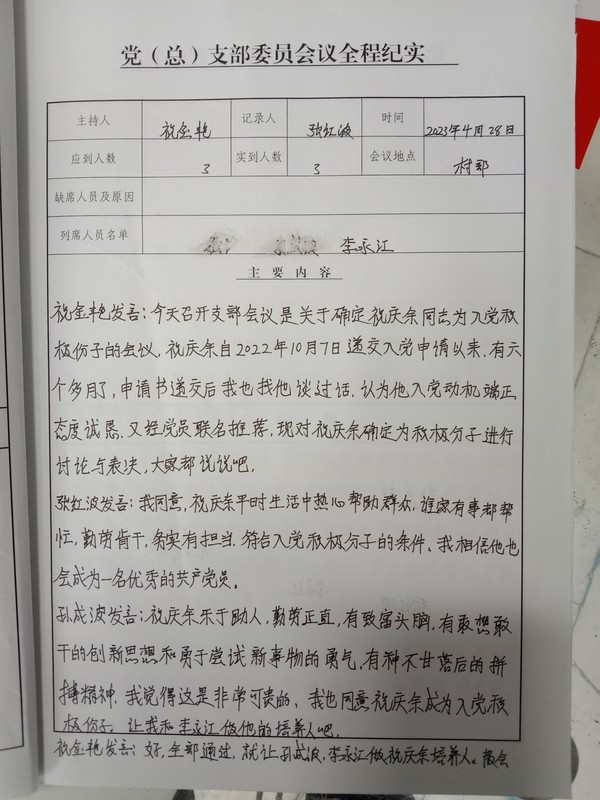 党（总）支部委员会议全程纪实
主持人 祝金艳 记录人 张红波 时间 2023年4月28日
应到人数 3 实到人数 3 会议地点 村部
缺席人员及原因
列席人员名单 李永江
主要内容
祝金艳发言：今天召开支部会议是关于确定祝庆余同志为入党积
极份子的会议，祝庆余自2022年10月7日递交入党申请以来，有六
个多月了，申请书递交后我也找他谈过话，认为他入党动机端正，
态度诚恳，又经党员联名推荐，现对祝庆余确定为积极分子进行
讨论与表决，大家都说说吧。
张红波发言：我同意，祝庆余平时生活中热心帮助群众，谁家有事都帮
忙，勤劳肯干，务实有担当，符合入党积极分子的条件、我相信他也
会成为一名优秀的共产党员。
孙成波发言：祝庆余乐于助人，勤劳正直，有致富头脑，有敢想敢
干的创新思想和勇于尝试新事物的勇气，有种不甘落后的拼
搏精神，我觉得这是非常可贵的，我也同意祝庆余成为入党积
极份子，让我和李永江做他的培养人吧。
祝金艳发言：好，全部通过，就让孙成波，李永江做祝庆余培养人。散会